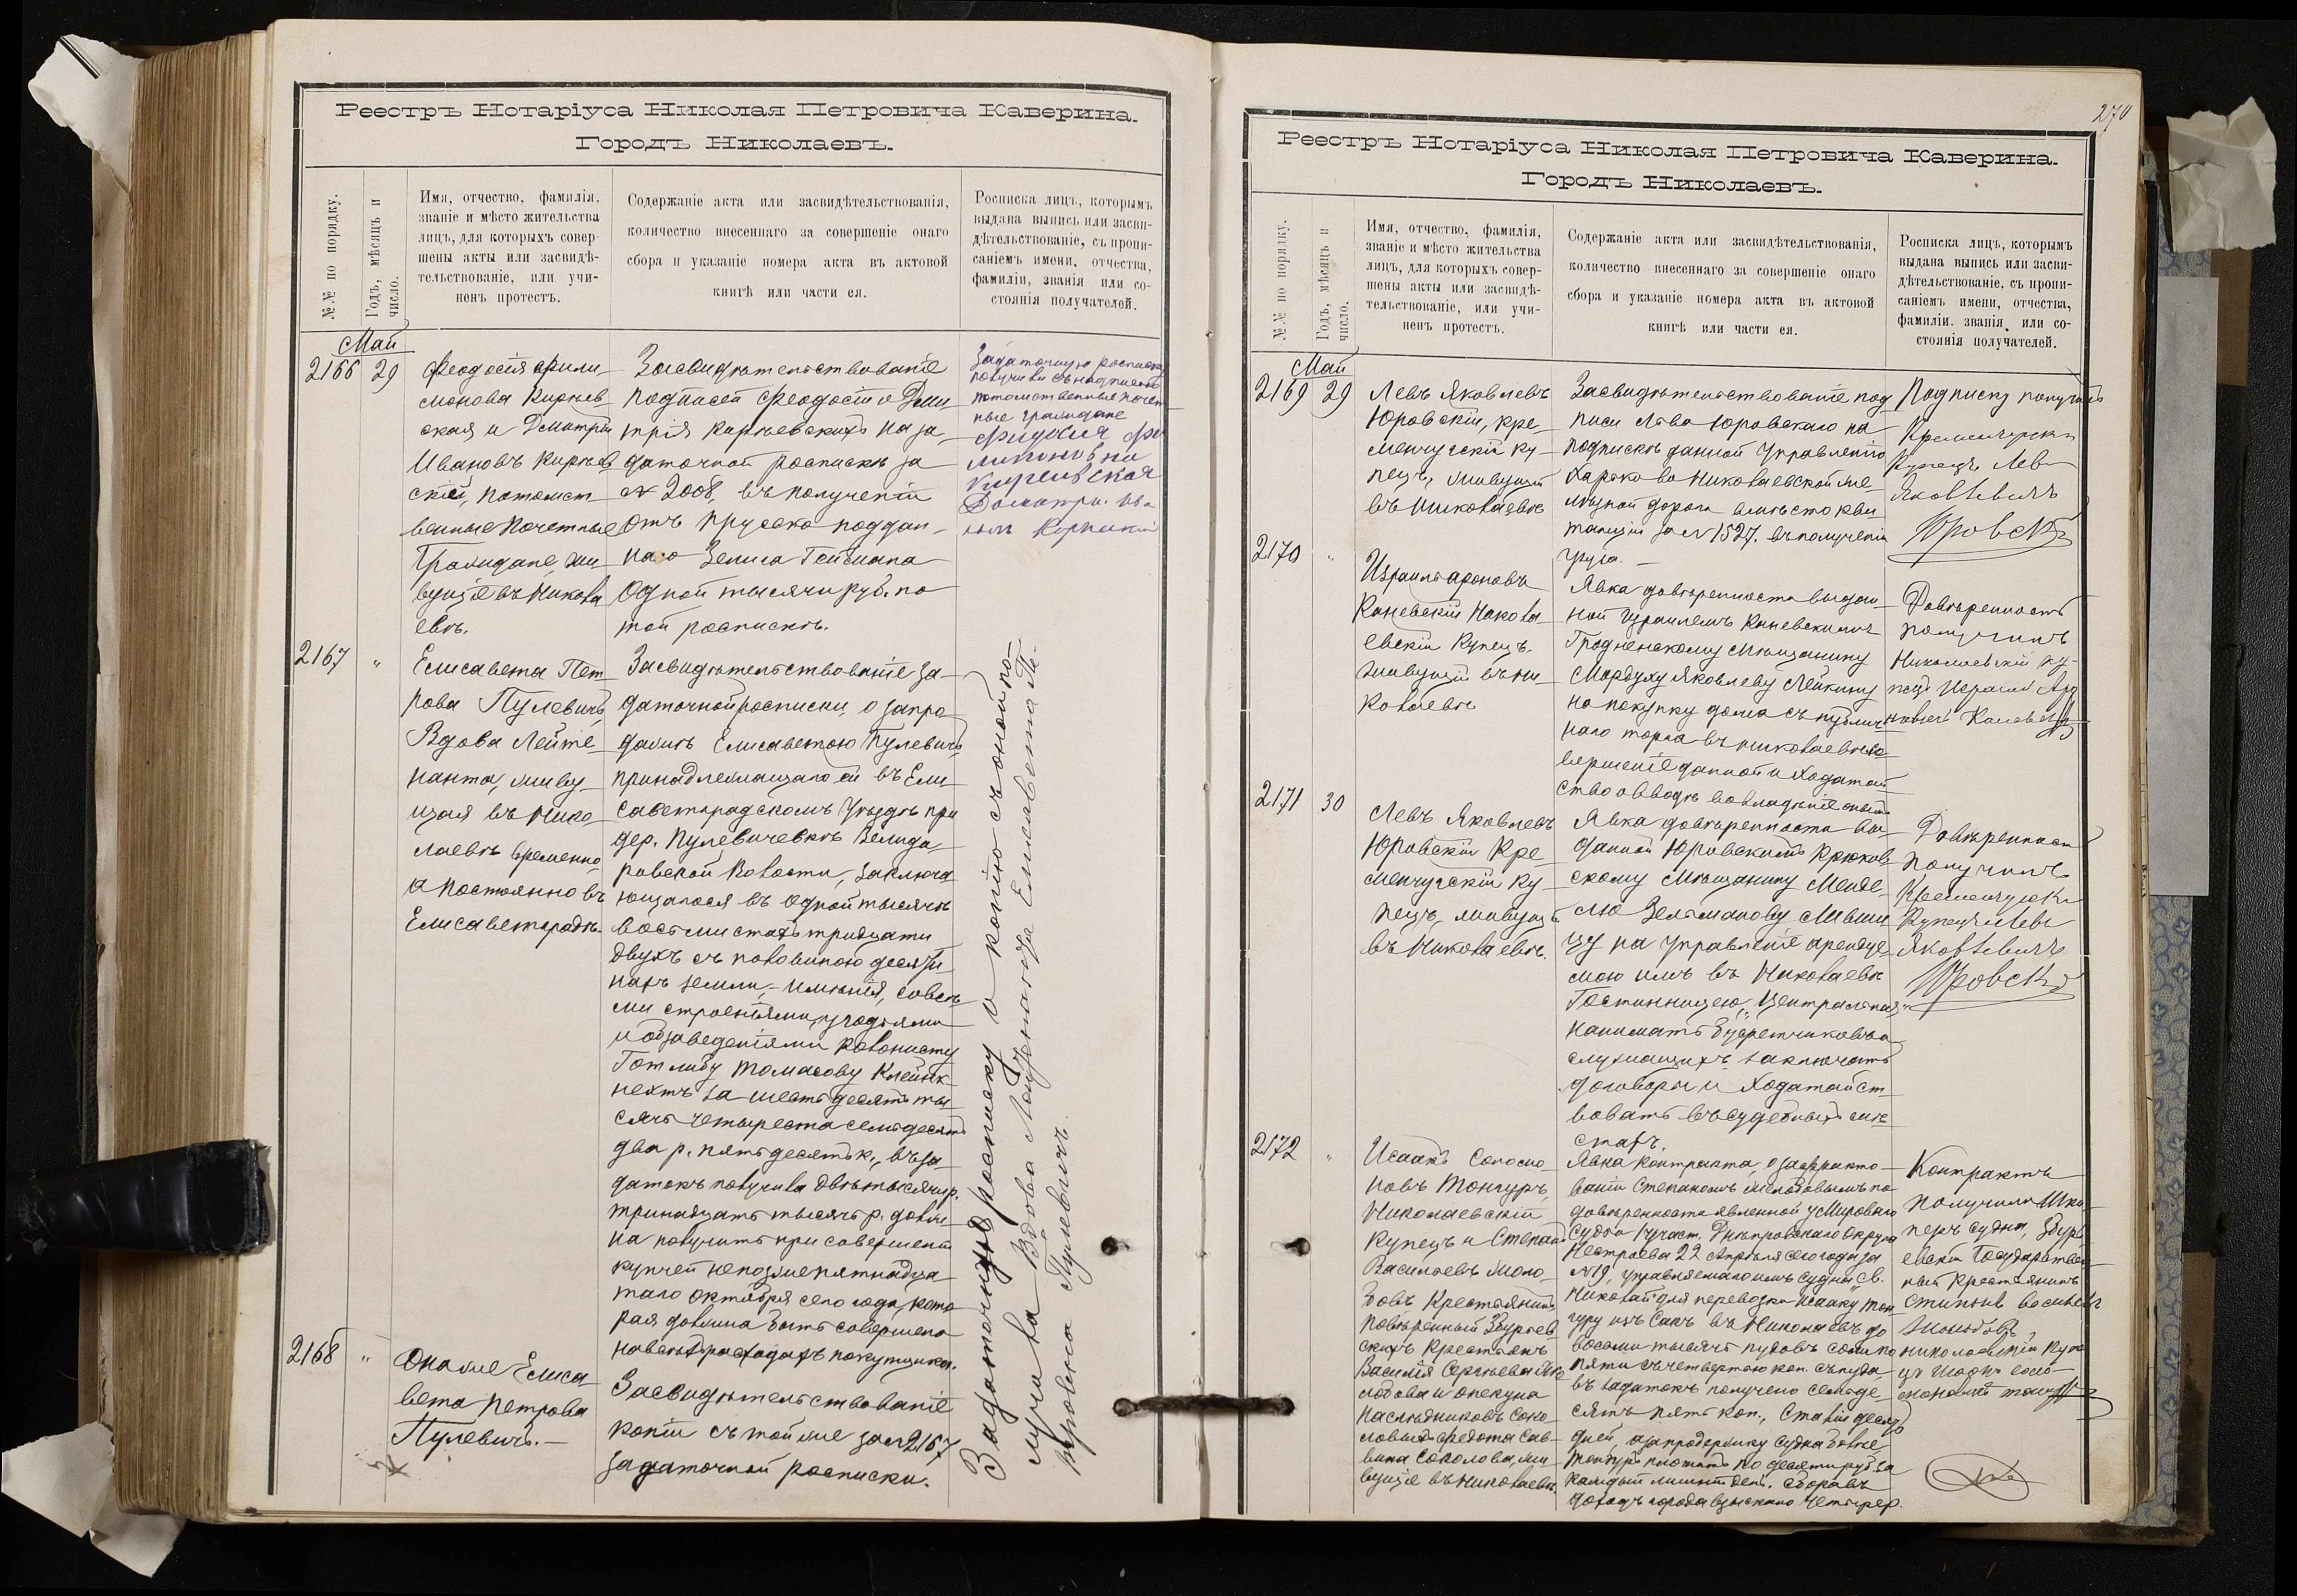 Реестръ Нотаріуса Николая Петровича Каверина.
Городъ Николаевъ.
№№ по порядку.
Годъ, мѣсяцъ и
число.
Имя, отчество, фамилія,
званіе и мѣсто жительства
лицъ, для которыхъ совер-
шены акты или засвидѣ-
тельствованіе, или учи-
ненъ протестъ.
Содержаніе акта или засвидѣтельствованія,
количество внесеннаго за совершеніе онаго
сбора и указаніе номера акта въ актовой
книгѣ или части ея.
Росписка лицъ, которымъ
выдана выпись или засви-
дѣтельствованіе, съ пропи-
саніемъ имени, отчества,
фамиліи, званія или со-
стоянія получателей.
Май
2166 29
Феодосія Фили-
монова Кирѣев-
ская и Дмитрій
Ивановъ Кирѣев-
скій, потомст-
венные почетные
Граждане, жи-
вущіе въ Никола
евѣ.
Засвидѣтельствованіе
подписей Феодосіи и Дми-
трія Кирѣевскихъ на за-
даточной роспискѣ за
№ 2008, въ полученіи
отъ прусско-поддан-
наго Зелига Гейсмана
Одной тысячи руб. по
той роспискѣ.
Задаточную росписку
получили съ надписью
потомственные почет
ные граждане
Фидосия Фи
лимоновна
Киреевская
Дмитрий Ива
2167 "
Елисавета Пет-
рова Пулевичъ,
Вдова Лейте-
нанта, живу-
щая въ Нико-
лаевѣ временно,
а постоянно въ
Елисаветградѣ.
Засвидѣтельствованіе за-
даточной росписки, о запро-
дажѣ Елисаветою Пулевичъ,
принадлежащаго ей въ Ели-
саветградскомъ Уѣздѣ при
дер. Пулевичевкѣ
ровской Волости, заключа-
ющагося въ одной тысячѣ
восьмистахъ тридцати
двухъ съ половиною десяти
нахъ земли, - имѣнія, со всѣ-
ми строеніями, угодьями
и обзаведеніями колонисту
Готлибу Томасову Клейнк-
нехтъ за шестьдесятъ ты-
сячъ четыреста семьдесятъ
два р. пятьдесятъ к., въ за-
датокъ получила двѣ тысячи р.
тринадцать тысячъ р. долж-
на получить при совершеніи
купчей не позже пятнадца-
таго октября сего года, кото-
рая должна быть совершена
на всѣхъ расходахъ покупщика.
Задаточную росписку и копію съ оной по-
лучила Вдова Лейтенанта Елисавета Пе-
тровна Пулевичъ.
2168 "
Она же Елиса-
вета Петрова
Пулевичъ. -
Засвидѣтельствованіе
копіи съ той же за № 2167
задаточной росписки.
270
Реестръ Нотаріуса Николая Петровича Каверина.
Городъ Николаевъ.
№№ по порядку.
Годъ, мѣсяцъ и
число.
Имя, отчество, фамилія,
званіе и мѣсто жительства
лицъ, для которыхъ совер-
шены акты или засвидѣ-
тельствованіе, или учи-
ненъ протестъ.
Содержаніе акта или засвидѣтельствованія,
количество внесеннаго за совершеніе онаго
сбора и указаніе номера акта въ актовой
книгѣ или части ея.
Росписка лицъ, которымъ
выдана выпись или засви-
дѣтельствованіе, съ пропи-
саніемъ имени, отчества,
фамиліи. званія, или со-
стоянія получателей.
Май
2169 29
Левъ Яковлевъ
Юровскій, кре-
менчугскій ку-
пецъ, живущій
въ Николаевѣ
Засвидѣтельствованіе под-
писи Льва Юровскаго на
подпискѣ данной Управленію
Харьково Николаевской же-
лѣзной дороги вмѣсто кви-
танціи за № 1527. въ полученіи
груза. -
Подписку получилъ
Кременчугскій
Купецъ Левъ
Яковлевичъ
Юровскій
2170 "
Израиль Ароновъ
Каневскій Никола-
евскій Купецъ.
живущій въ Ни-
колаевѣ
Явка довѣренности выдан-
ной Израилемъ Каневскимъ
Гродненскому Мѣщанину
Мордуху Яковлеву Лейкину
на покупку дома съ публич-
наго торга въ Николаевѣ, со-
вершеніе данной и ходатай-
ство о вводѣ во владѣніе онымъ
Довѣренность
получилъ
Николаевскій ку-
пецъ Израиль Аро
новичъ Каневскій
2171 30
Левъ Яковлевъ
Юровскій Кре-
менчугскій ку-
пецъ, живущій
въ Николаевѣ.
Явка довѣренности вы-
данной Юровскимъ Крюков-
скому Мѣщанину Менде-
лю Зельманову Лившицу
цу на управленіе арендуе-
мою имъ въ Николаевѣ
Гостинницею „Центральная"
нанимать буфетчиковъ и
служащихъ заключать
договоры и ходатайст-
вовать въ судебныхъ мѣ-
стахъ.
Довѣренность
получилъ
Кременчугскій
Купецъ Левъ
Яковлевичъ
Юровскій
2172 "
Исаакъ Соломо-
новъ Тонгуръ,
Николаевскій
Купецъ и Степанъ
Васильевъ Моло-
довъ Крестьянинъ
повѣренный Збурьев-
скихъ Крестьянъ
Василія Сергѣева Мо-
лодова и опекуна
наслѣдниковъ Соко-
ловыхъ Федота Сав-
вина Соколова, жи-
вущіе въ Николаевѣ.
Явка контракта, о зафракто-
ваніи Степаномъ Молодовымъ по
довѣренности явленной у Мироваго
Судьи 1 участ. Днѣпровскаго Округа
22 Апрѣля сего года за
№ 19, управляемаго имъ судна „Св.
Николай" для перевозки Исааку Тон-
гуру изъ Сакъ въ Николаевъ до
восьми тысячъ пудовъ соли по
пяти съ четвертью коп. съ пуда -
въ задатокъ получено семьде-
сятъ пять коп., Сталій десять
дней, а за продержку судна болѣе,
Тонгуръ платитъ по десяти руб. за
каждый лишній день. Сбора въ
доходъ города взыскано четыре р.
Контрактъ
получили Шки-
перъ судна, Збурь
евскій Государствен-
ный Крестьянинъ
Степанъ Васильевъ
Молодовъ,
Николаевскій Купе
цъ Исаакъ Соло-
моновичъ Тонгуръ